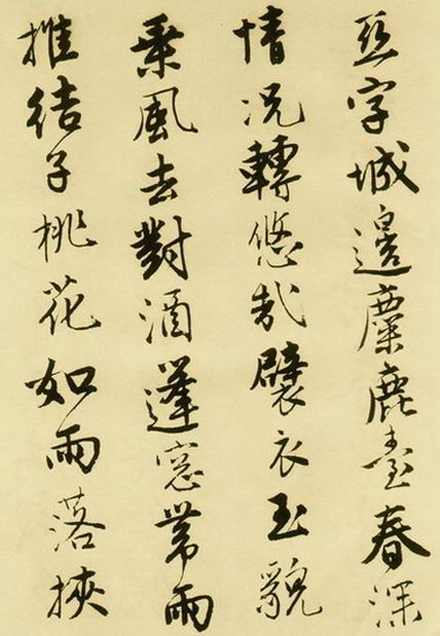 亞字城邊麋鹿臺春深
情況轉悠哉襞衣玉貌
乗風去對酒蓬窓帶雨
推結子桃花如雨落挾